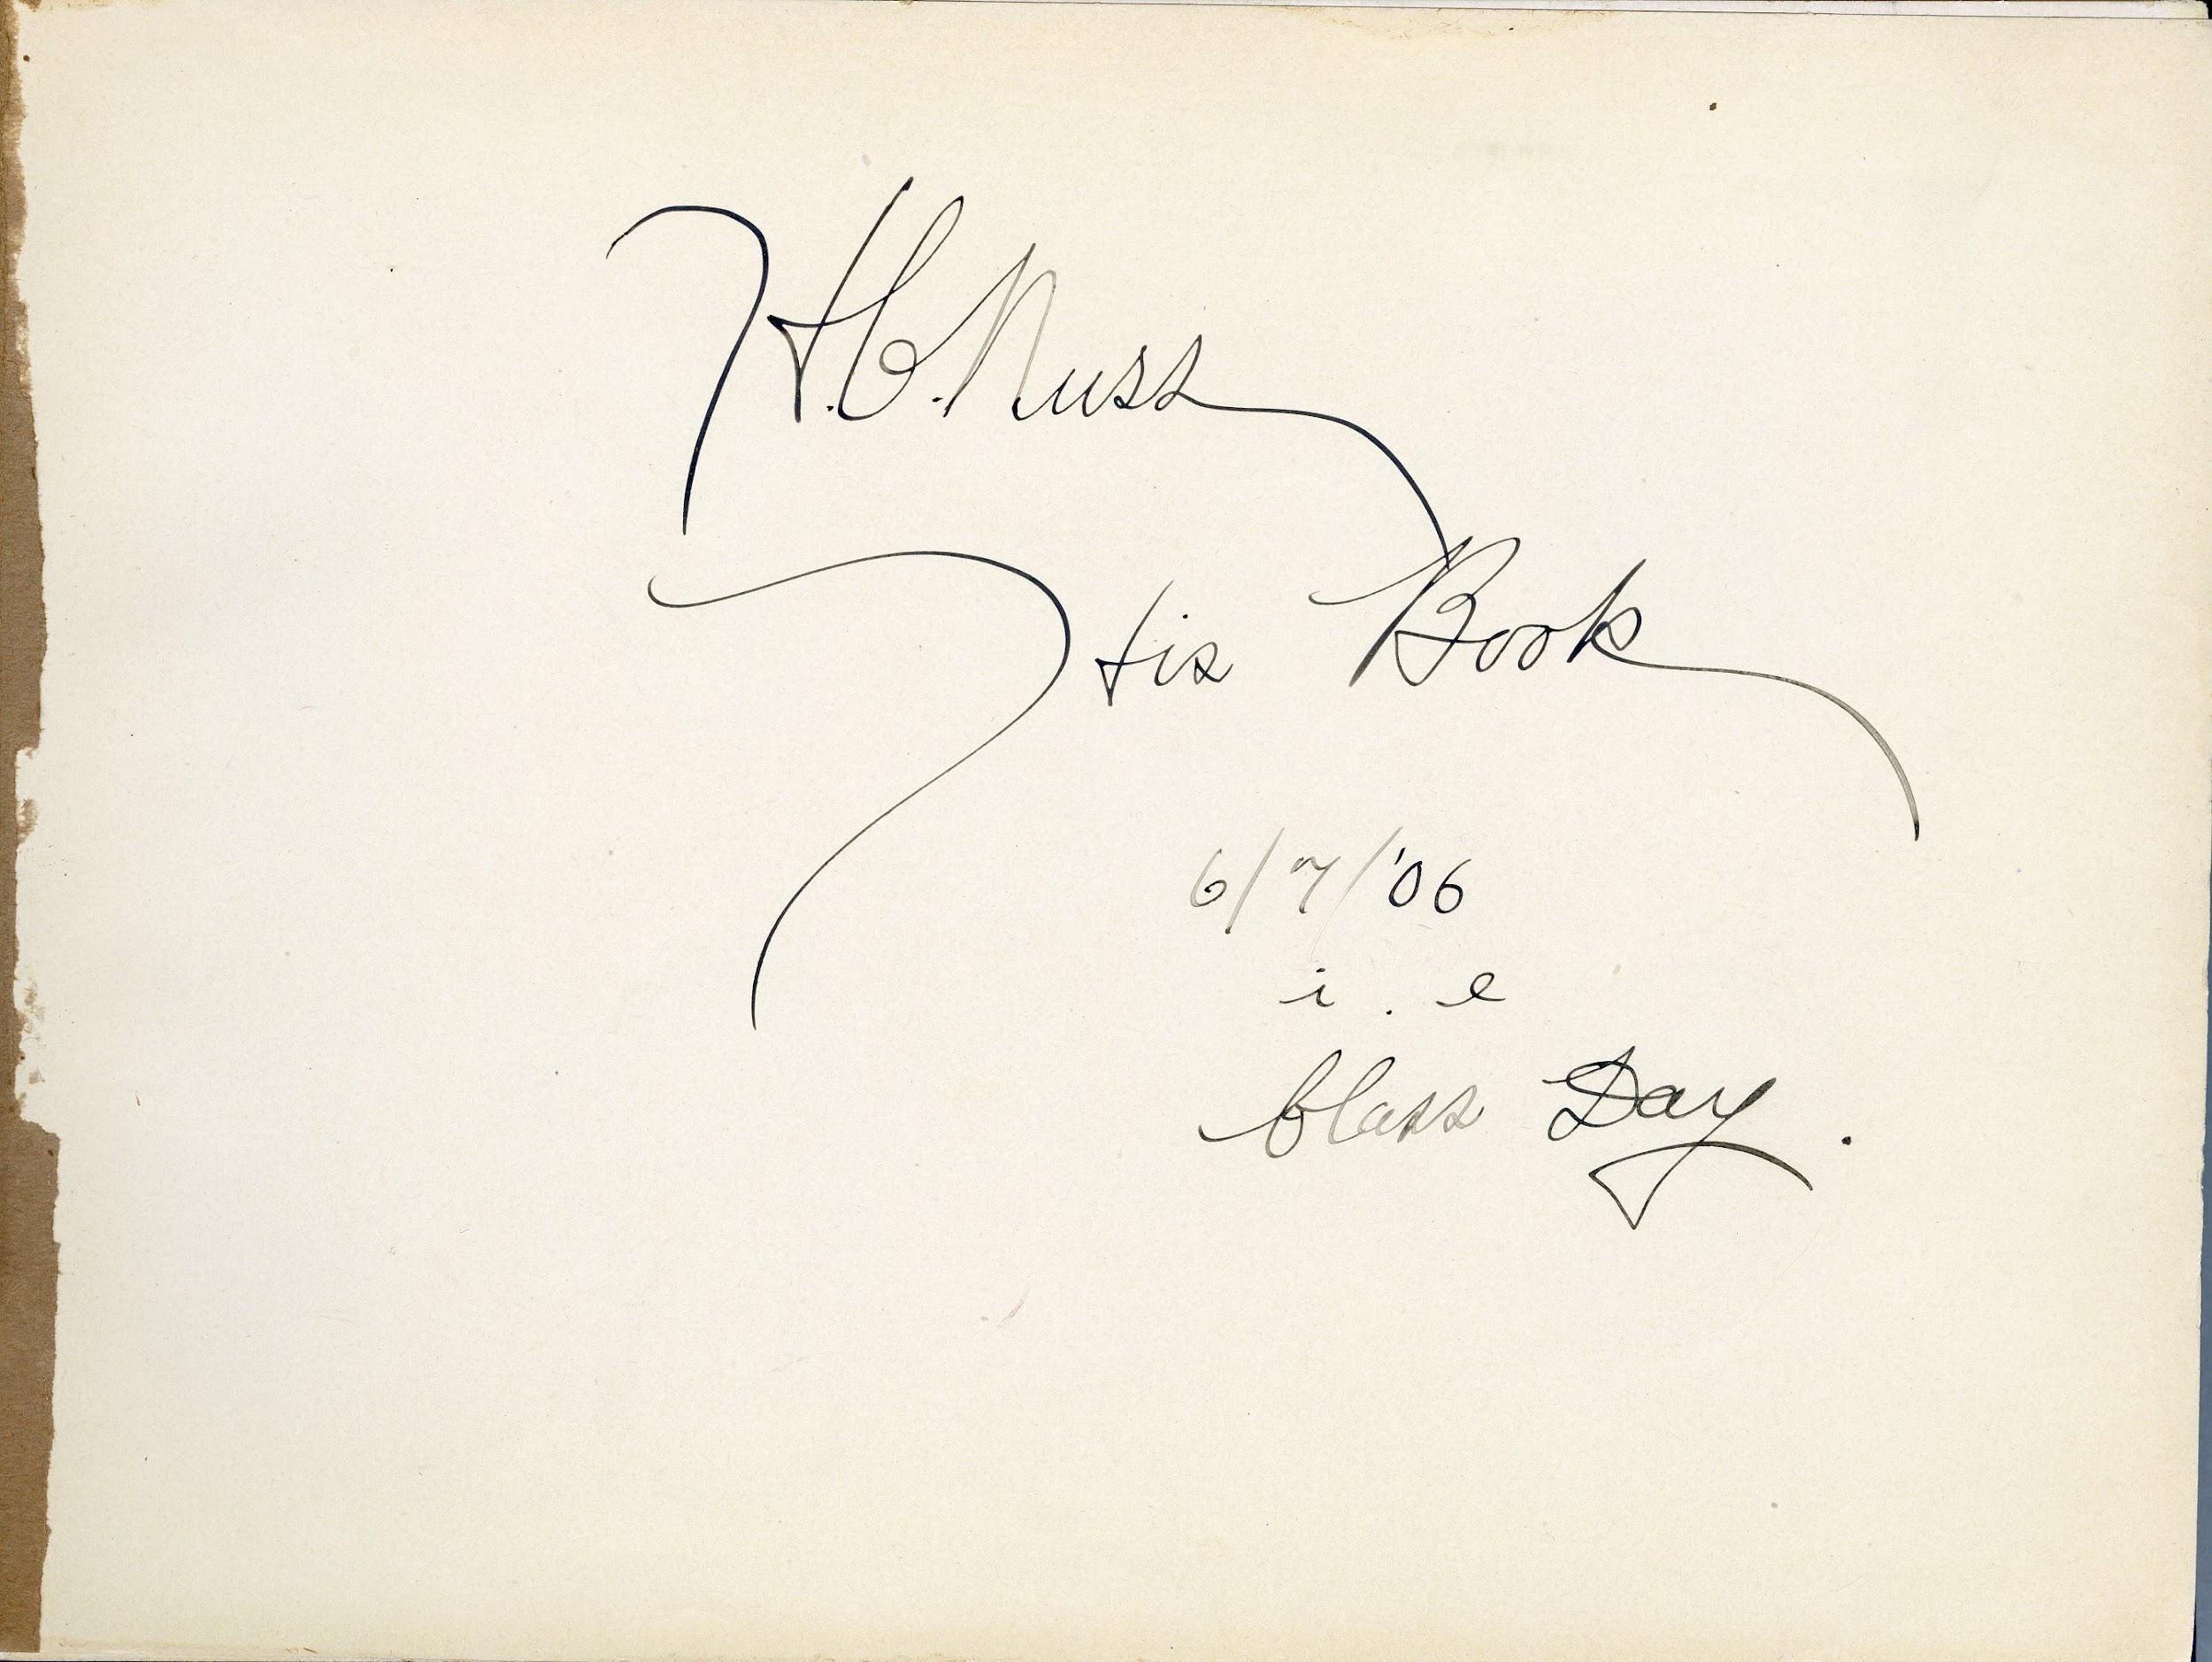 H.C. Nuss
His Book
6/7/'06
i.e
Class Day.